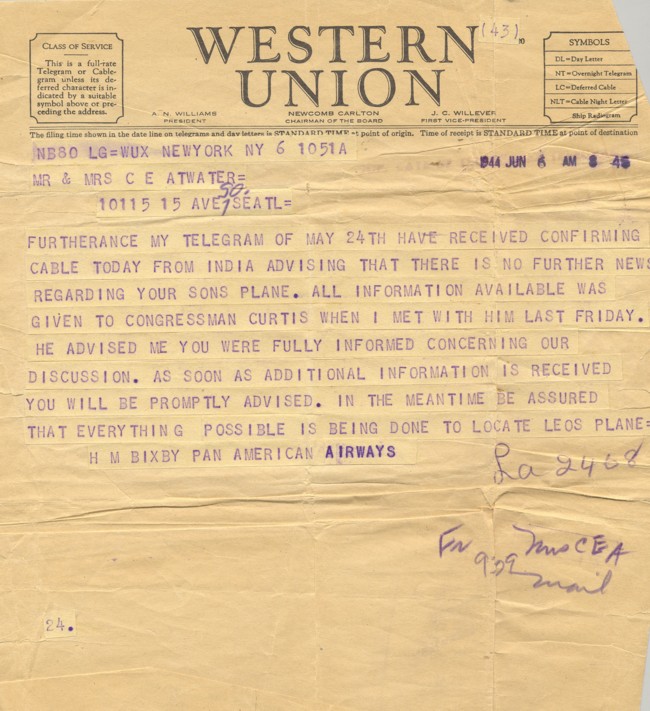 (43)
WESTERN
UNION
CLASS OF SERVICE
This is a full-rate
Telegram or Cable-
gram unless its de-
ferred character is in-
dicated by a suitable
symbol above or pre-
ceding the address.
A. N. WILLIAMS
PRESIDENT
NEWCOMB CARLTON
CHAIRMAN OF THE BOARD
J. C. WILLEVER
FIRST VICE-PRESIDENT
SYMBOLS
DL=Day Letter
NT=Overnight Telegram
LC=Deferred Cable
NLT=Cable Night Letter
Ship Radiogram
The filing time shown in the date line on telegrams and day letters is STANDARD TIME at point of origin. Time of receipt is STANDARD TIME at point of destination
NB80 LG=WUX NEWYORK NY 6 1051A
1944 JUN 6 AM 8 45
MR & MRS C E ATWATER=
SO.
10115 15 AVE SEATL=
FURTHERANCE MY TELEGRAM OF MAY 24TH HAVE RECEIVED CONFIRMING
CABLE TODAY FROM INDIA ADVISING THAT THERE IS NO FURTHER NEWS
REGARDING YOUR SONS PLANE. ALL INFORMATION AVAILABLE WAS
GIVEN TO CONGRESSMAN CURTIS WHEN I MET WITH HIM LAST FRIDAY.
HE ADVISED ME YOU WERE FULLY INFORMED CONCERNING OUR
DISCUSSION. AS SOON AS ADDITIONAL INFORMATION IS RECEIVED
YOU WILL BE PROMPTLY ADVISED. IN THE MEANTIME BE ASSURED
THAT EVERYTHING POSSIBLE IS BEING DONE TO LOCATE LEOS PLANE=
H M BIXBY PAN AMERICAN AIRWAYS
La 2468
Mrs C E A
929
mail
24.